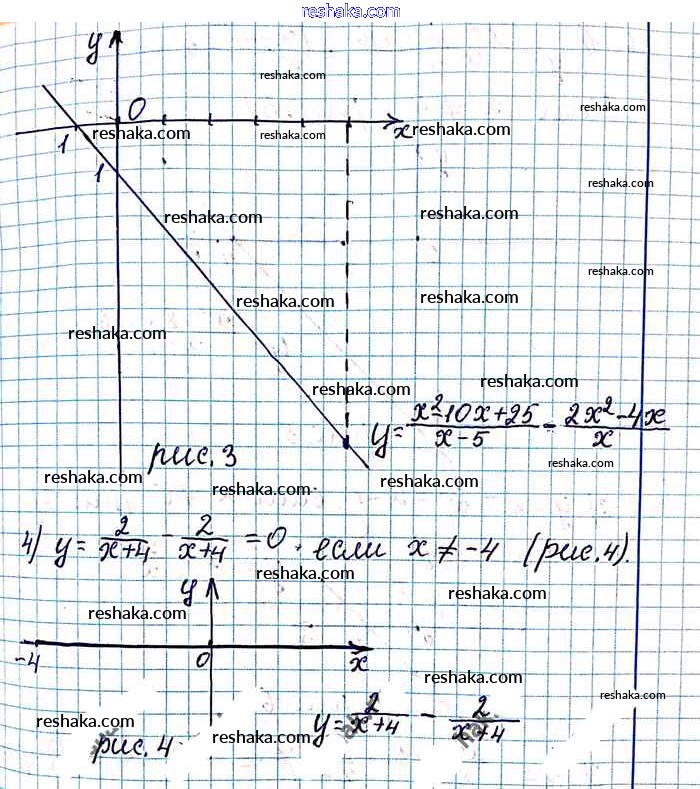 reshaka.com
y
reshaka.com
0
reshaka.com
reshaka.com reshaka.com x reshaka.com
1
1 reshaka.com
reshaka.com reshaka.com
reshaka.com
reshaka.com reshaka.com
reshaka.com
reshaka.com reshaka.com
y = (x²-10x+25)/(x-5) - (2x²-4x)/x
рис. 3 reshaka.com
reshaka.com reshaka.com reshaka.com
4) y = 2/(x+4) - 2/(x+4) = 0, если x ≠ -4 (рис. 4).
reshaka.com
y reshaka.com
reshaka.com
-4 0 x
reshaka.com
reshaka.com
reshaka.com y = 2/(x+4) - 2/(x+4)
рис. 4 reshaka.com